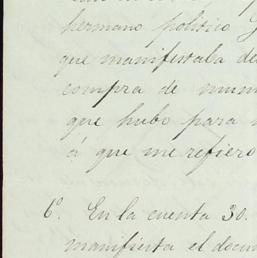 hermano politico
que manifestaba de
compra de
que hubo para
á que me refiero
6º. En la cuenta 30.
manifiesta el docu